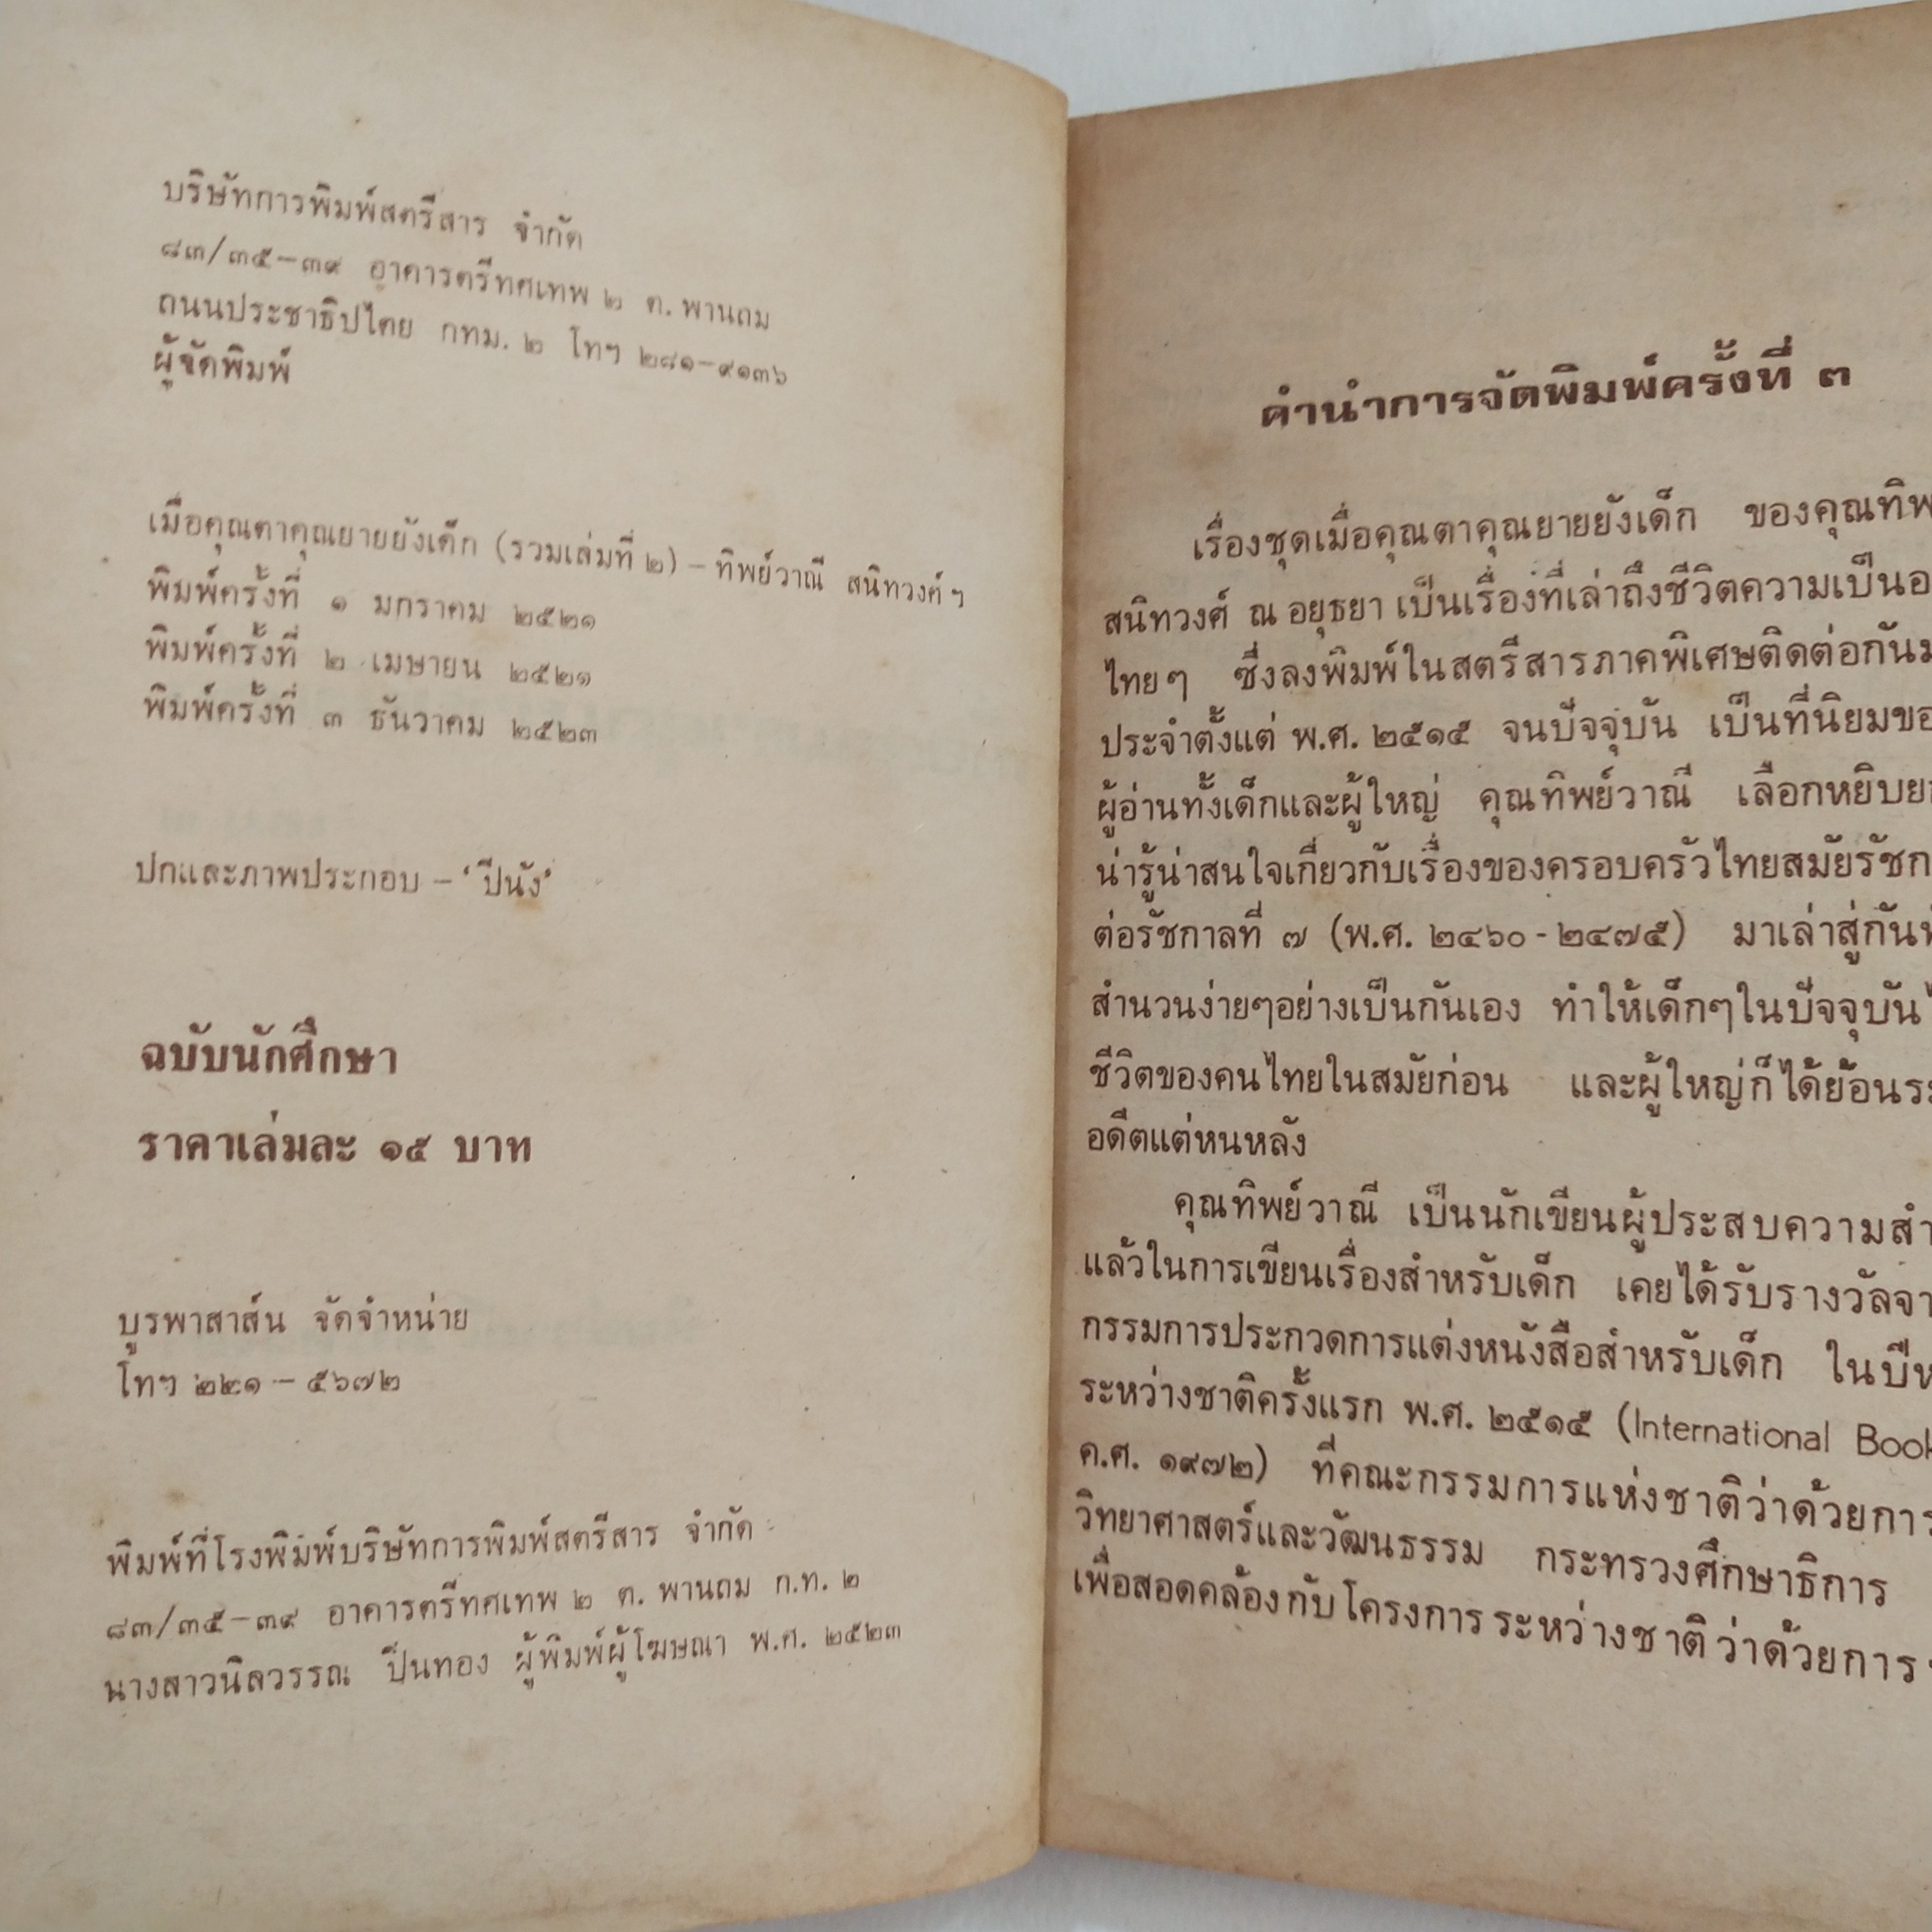 บริษัทการพิมพ์สตรีสาร จำกัด
๘๓/๓๕–๓๙ อาคารตรีทศเทพ ๒ ต. พานถม
ถนนประชาธิปไตย กทม. ๒ โทฯ ๒๘๑–๙๑๓๖
ผู้จัดพิมพ์
เมื่อคุณตาคุณยายยังเด็ก (รวมเล่มที่ ๒) – ทิพย์วาณี สนิทวงศ์ฯ
พิมพ์ครั้งที่ ๑ มกราคม ๒๕๒๑
พิมพ์ครั้งที่ ๒ เมษายน ๒๕๒๑
พิมพ์ครั้งที่ ๓ ธันวาคม ๒๕๒๓
ปกและภาพประกอบ – ‘ปีนัง’
ฉบับนักศึกษา
ราคาเล่มละ ๑๕ บาท
บูรพาสาส์น จัดจำหน่าย
โทฯ ๒๒๑ – ๕๖๗๒
พิมพ์ที่โรงพิมพ์บริษัทการพิมพ์สตรีสาร จำกัด
๘๓/๓๕–๓๙ อาคารตรีทศเทพ ๒ ต. พานถม ก.ท. ๒
นางสาวนิลวรรณ ปิ่นทอง ผู้พิมพ์ผู้โฆษณา พ.ศ. ๒๕๒๓
คำนำการจัดพิมพ์ครั้งที่ ๓
เรื่องชุดเมื่อคุณตาคุณยายยังเด็ก ของคุณทิพ
สนิทวงศ์ ณ อยุธยา เป็นเรื่องที่เล่าถึงชีวิตความเป็นอ
ไทยๆ ซึ่งลงพิมพ์ในสตรีสารภาคพิเศษติดต่อกันม
ประจำตั้งแต่ พ.ศ. ๒๕๑๕ จนปัจจุบัน เป็นที่นิยมขอ
ผู้อ่านทั้งเด็กและผู้ใหญ่ คุณทิพย์วาณี เลือกหยิบย
น่ารู้น่าสนใจเกี่ยวกับเรื่องของครอบครัวไทยสมัยรัชก
ต่อรัชกาลที่ ๗ (พ.ศ. ๒๔๖๐ - ๒๔๗๕) มาเล่าสู่กัน
สำนวนง่ายๆอย่างเป็นกันเอง ทำให้เด็กๆในปัจจุบัน
ชีวิตของคนไทยในสมัยก่อน และผู้ใหญ่ก็ได้ย้อนร
อดีตแต่หนหลัง
คุณทิพย์วาณี เป็นนักเขียนผู้ประสบความสำ
แล้วในการเขียนเรื่องสำหรับเด็ก เคยได้รับรางวัลจา
กรรมการประกวดการแต่งหนังสือสำหรับเด็ก ในปีห
ระหว่างชาติครั้งแรก พ.ศ. ๒๕๑๕ (International Book
ค.ศ. ๑๙๗๒) ที่คณะกรรมการแห่งชาติว่าด้วยการ
วิทยาศาสตร์และวัฒนธรรม กระทรวงศึกษาธิการ
เพื่อสอดคล้องกับโครงการระหว่างชาติว่าด้วยการ